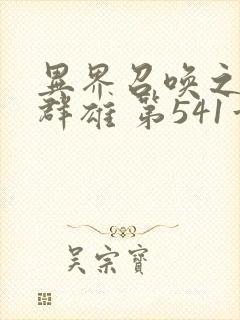 異界召喚之
群雄 第541
吳宗寶